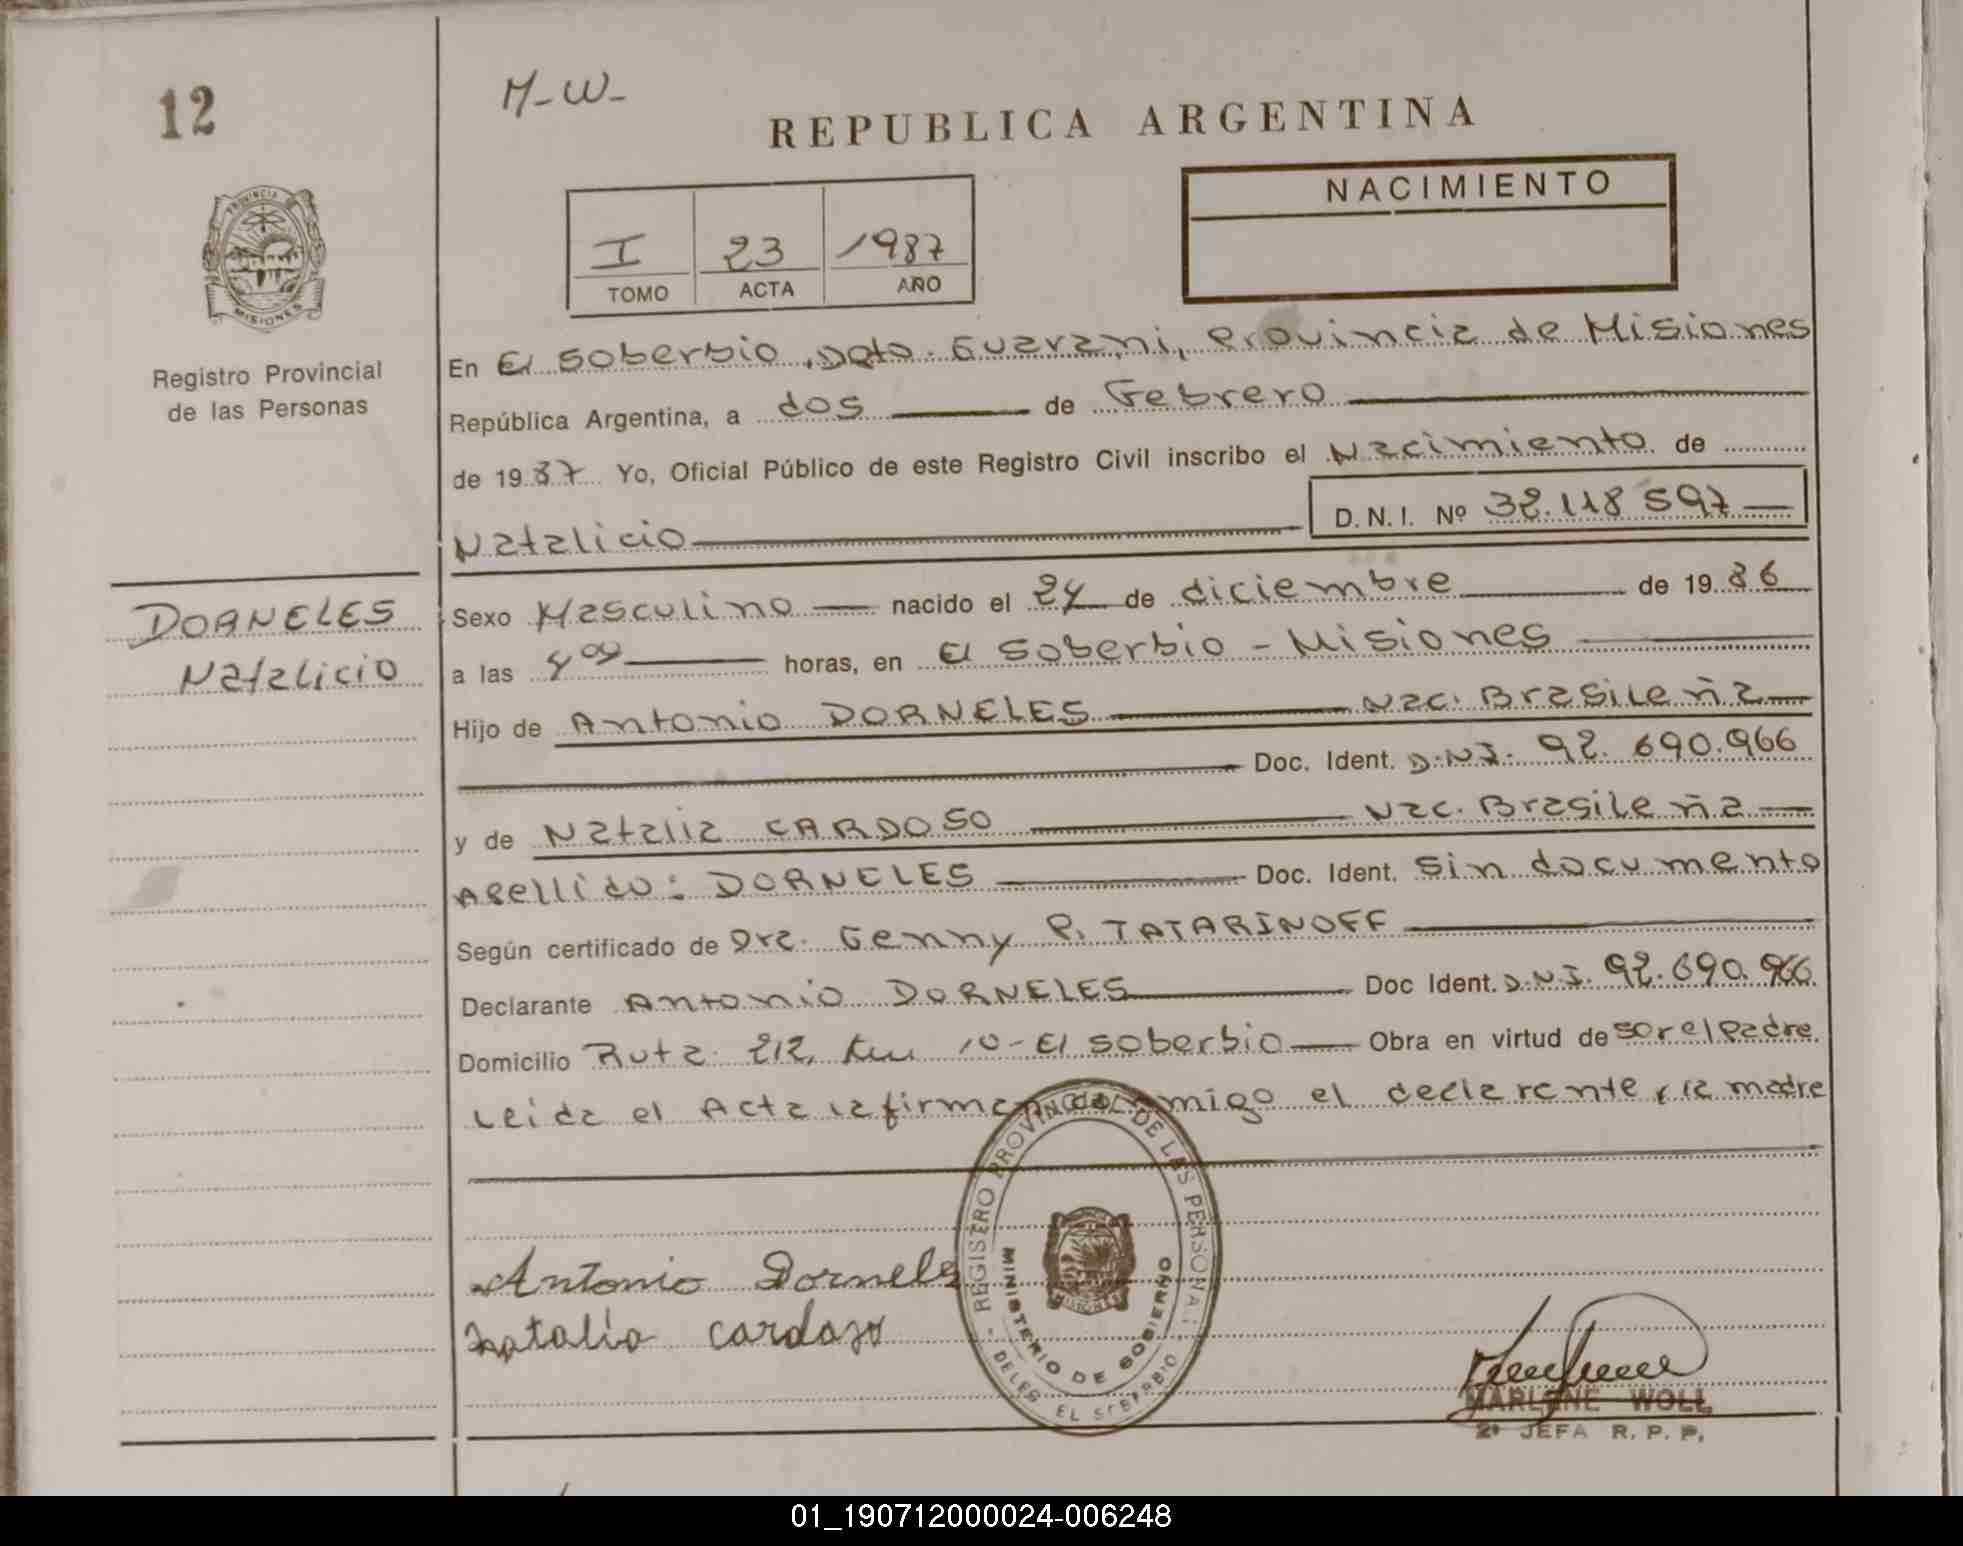 12
M-W-
REPUBLICA ARGENTINA
PROVINCIA DE
MISIONES
NACIMIENTO
I 23 1987
TOMO ACTA AÑO
Registro Provincial
de las Personas
En El Soberbio, Dpto. Guarani, Provincia de Misiones
República Argentina, a dos de Febrero
de 1987 Yo, Oficial Público de este Registro Civil inscribo el Nacimiento de
Natalicio D.N.I. Nº 32.118 597
DORNELES
Natalicio
Sexo Masculino nacido el 24 de diciembre de 1986
a las horas, en El Soberbio - Misiones
Hijo de Antonio DORNELES Nac. Brasileña
Doc. Ident. D.N.I. 92.690.966
y de Natalia CARDOSO Nac. Brasileña
Apellido: DORNELES Doc. Ident. Sin documento
Según certificado de Dra. Genny P. TATARINOFF
Declarante Antonio DORNELES Doc Ident. D.N.I. 92.690.966
Domicilio Ruta 212, Km 10 - El Soberbio Obra en virtud de Ser el Padre
Leida el Acta la firman conmigo el declarante, la madre
REGISTRO PROVINCIAL DE LAS PERSONAS
MINISTERIO DE GOBIERNO
MISIONES
- DELEG. EL SOBERBIO -
Antonio Dorneles
Natalia Cardozo
MARLENE WOLL
2ª JEFA R. P. P.
01_190712000024-006248